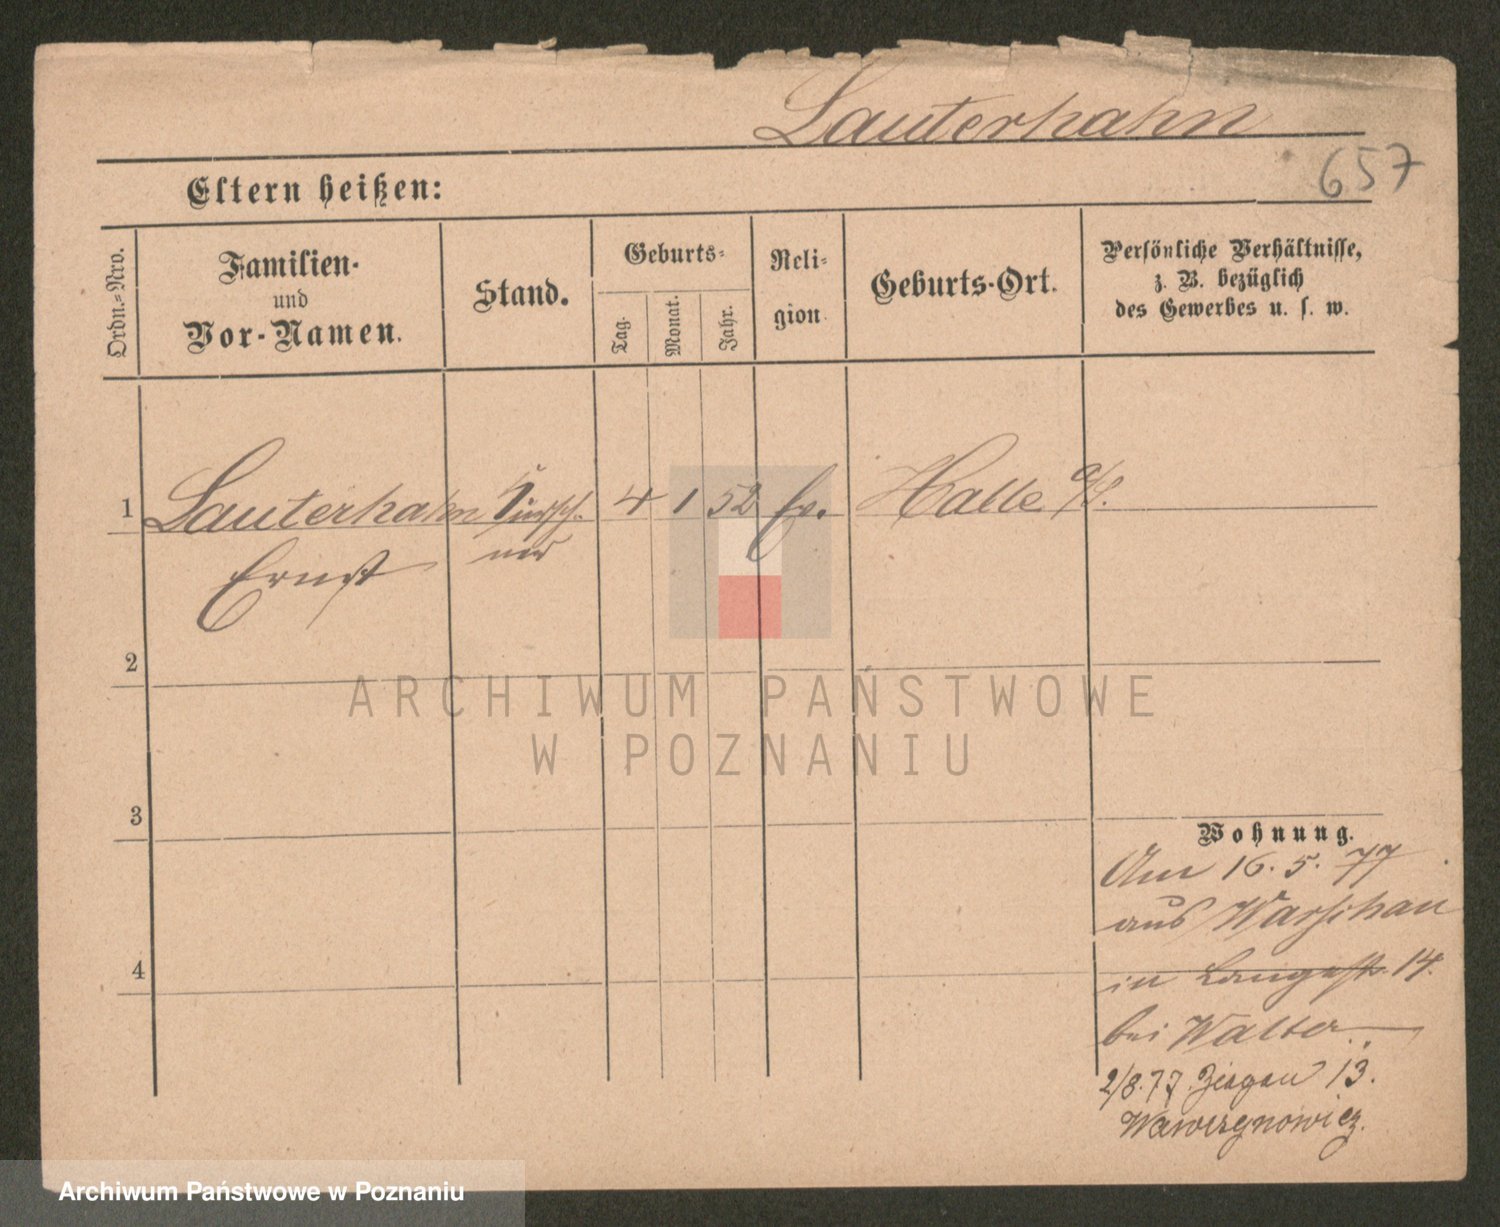 Lauterhahn
657
Eltern heißen:
Ordn.-Nro.
Familien-
und
Vor-Namen.
Stand.
Geburts-
Tag.
Monat.
Jahr.
Reli-
gion
Geburts-Ort.
Persönliche Verhältnisse,
z. B. bezüglich
des Gewerbes u. s. w.
1 Lauterhahn Kürsch- 4 1 52 Ev. Halle a/S.
Ernst ner
2
ARCHIWUM PAŃSTWOWE
W POZNANIU
3
Wohnung.
Am 16.5.77
aus Warschau
4
in Langestr. 14.
bei Walter
2/8.77. 13.
Wawrzynowicz.
Archiwum Państwowe w Poznaniu